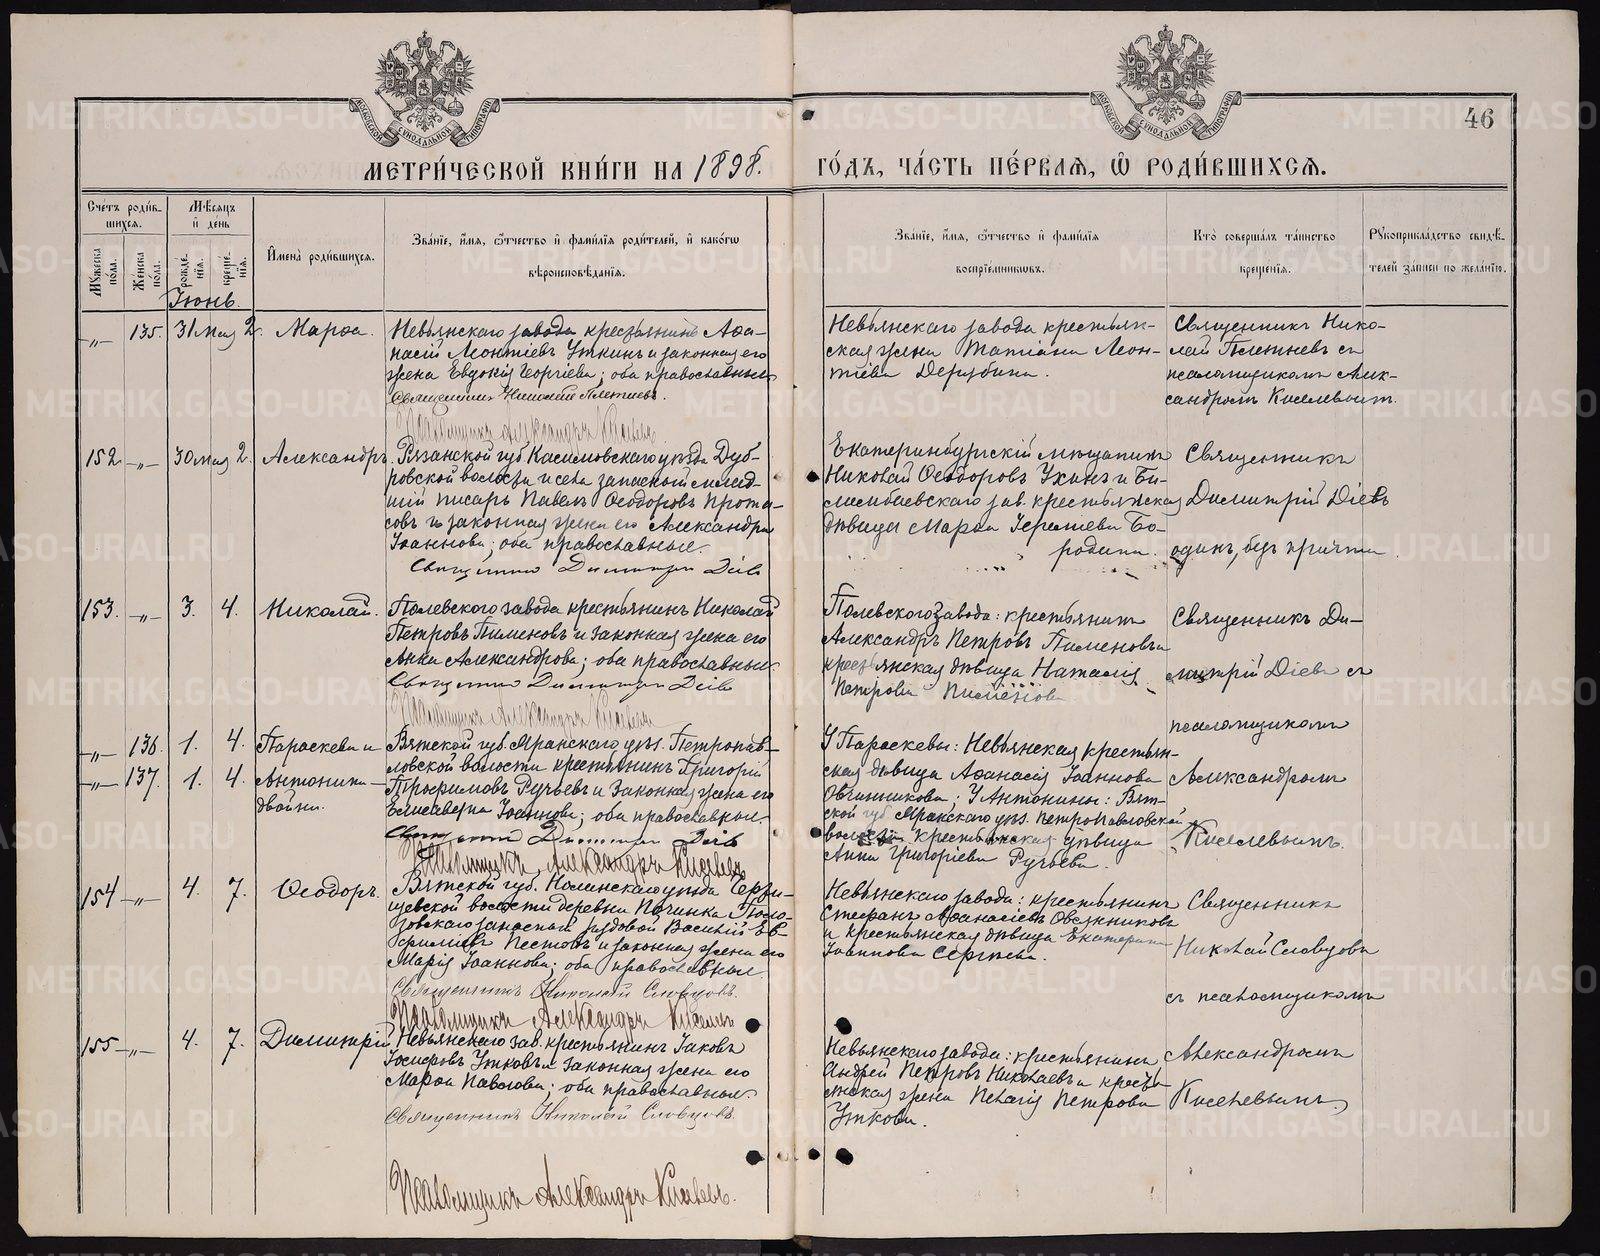 46
МЕТРИ́ЧЕСКОЙ КНИ́ГИ НА 1898. ГО́ДЪ, ЧА́СТЬ ПЕ́РВАѦ, Ѿ РОДИ́ВШИХСѦ.
Сче́тъ роди́в-
шихсѧ.
Мꙋжеска по́ла.
Же́нска по́ла.
Мѣ́сѧцъ
и҆ де́нь
рожде́нїѧ.
креще́нїѧ.
И҆мена̀ роди́вшихсѧ.
Зва́нїе, и҆́мѧ, ѻ҆́тчество и҆ фами́лїѧ роди́телей, и҆ како́гѡ
вѣроисповѣ́данїѧ.
Зва́нїе, и҆́мѧ, ѻ҆́тчество и҆ фами́лїѧ
воспрїе́мниковъ.
Кто̀ соверша́лъ та́инство
креще́нїѧ.
Рꙋкоприкла́дство свидѣ́-
телей за́писи по жела́нїю.
Іюнь.
-„- 135. 31 Мая 2. Марѳа.
Невьянскаго завода крестьянинъ Аѳа-
насій Леонтіевъ Уткинъ и законная его
жена Евдокія Георгіева; оба православные
Священникъ Николай Плетневъ.
Псаломщикъ Александръ Киселевъ
Невьянскаго завода крестьян-
ская жена Татіана Леон-
тіева Дерябина.
Священникъ Нико-
лай Плетневъ съ
псаломщикомъ Алек-
сандромъ Киселевымъ.
152 -„- 30 мая 2. Александръ.
Рязанской губ. Касимовскаго уѣзда Дуб-
ровской волости и села запасный млад-
шій писарь Павелъ Ѳеодоровъ Прота-
совъ и законная жена его Александра
Іоаннова; оба православные.
Священникъ Димитрій Діевъ
Екатеринбургскій мѣщанинъ
Николай Ѳеодоровъ Ухинъ и Би-
лимбаевскаго зав. крестьянская
дѣвица Марѳа Іереміева Бо-
родина.
Священникъ
Димитрій Діевъ
одинъ, безъ причта.
153. -„- 3. 4. Николай.
Полевского завода крестьянинъ Николай
Петровъ Пименовъ и законная жена его
Анна Александрова; оба православные.
Священникъ Димитрій Діевъ
Псаломщикъ Александръ Киселевъ
Полевского завода: крестьянинъ
Александръ Петровъ Пименовъ и
крестьянская дѣвица Наталія
Петрова Пименова
Священникъ Ди-
митрій Діевъ съ
псаломщикомъ
Александромъ
Киселевымъ.
-„- 136. 1. 4. Параскева и
-„- 137. 1. 4. Антонина –
двойни.
Вятской губ. Яранскаго уѣз. Петропав-
ловской волости крестьянинъ Григорій
Трофимовъ Ручьевъ и законная жена его
Елисавета Іоаннова; оба православные.
Священникъ Димитрій Діевъ
Псаломщикъ Александръ Киселевъ
У Параскевы: Невьянская крестьян-
ская дѣвица Аѳанасія Іоаннова
Овчинникова; У Антонины: Вят-
ской губ. Яранскаго уѣз. Петропавловской
волости крестьянская дѣвица
Анна Григоріева Ручьева.
154 -„- 4. 7. Ѳеодоръ.
Вятской губ. Нолинскаго уѣзда
волости деревни Починка
запасный рядовой Василій Ев-
и законная жена его
Марія Іоаннова; оба православные.
Священникъ Николай Словцовъ.
Псаломщикъ Александръ Киселевъ
Невьянскаго завода: крестьянинъ
Стефанъ Аѳанасіевъ Овчинниковъ
и крестьянская дѣвица Екатерина
Іоаннова Сергѣева.
Священникъ
Николай Словцовъ
съ псаломщикомъ
Александромъ
Киселевымъ.
155 -„- 4. 7. Димитрій
Невьянскаго зав. крестьянинъ Іаковъ
Іосифовъ Утковъ и законная жена его
Марѳа Павлова; оба православные.
Священникъ Николай Словцовъ.
Псаломщикъ Александръ Киселевъ.
Невьянскаго завода: крестьянинъ
Андрей Петровъ Николаевъ и кресть-
янская жена Пелагія Петрова
Уткова.